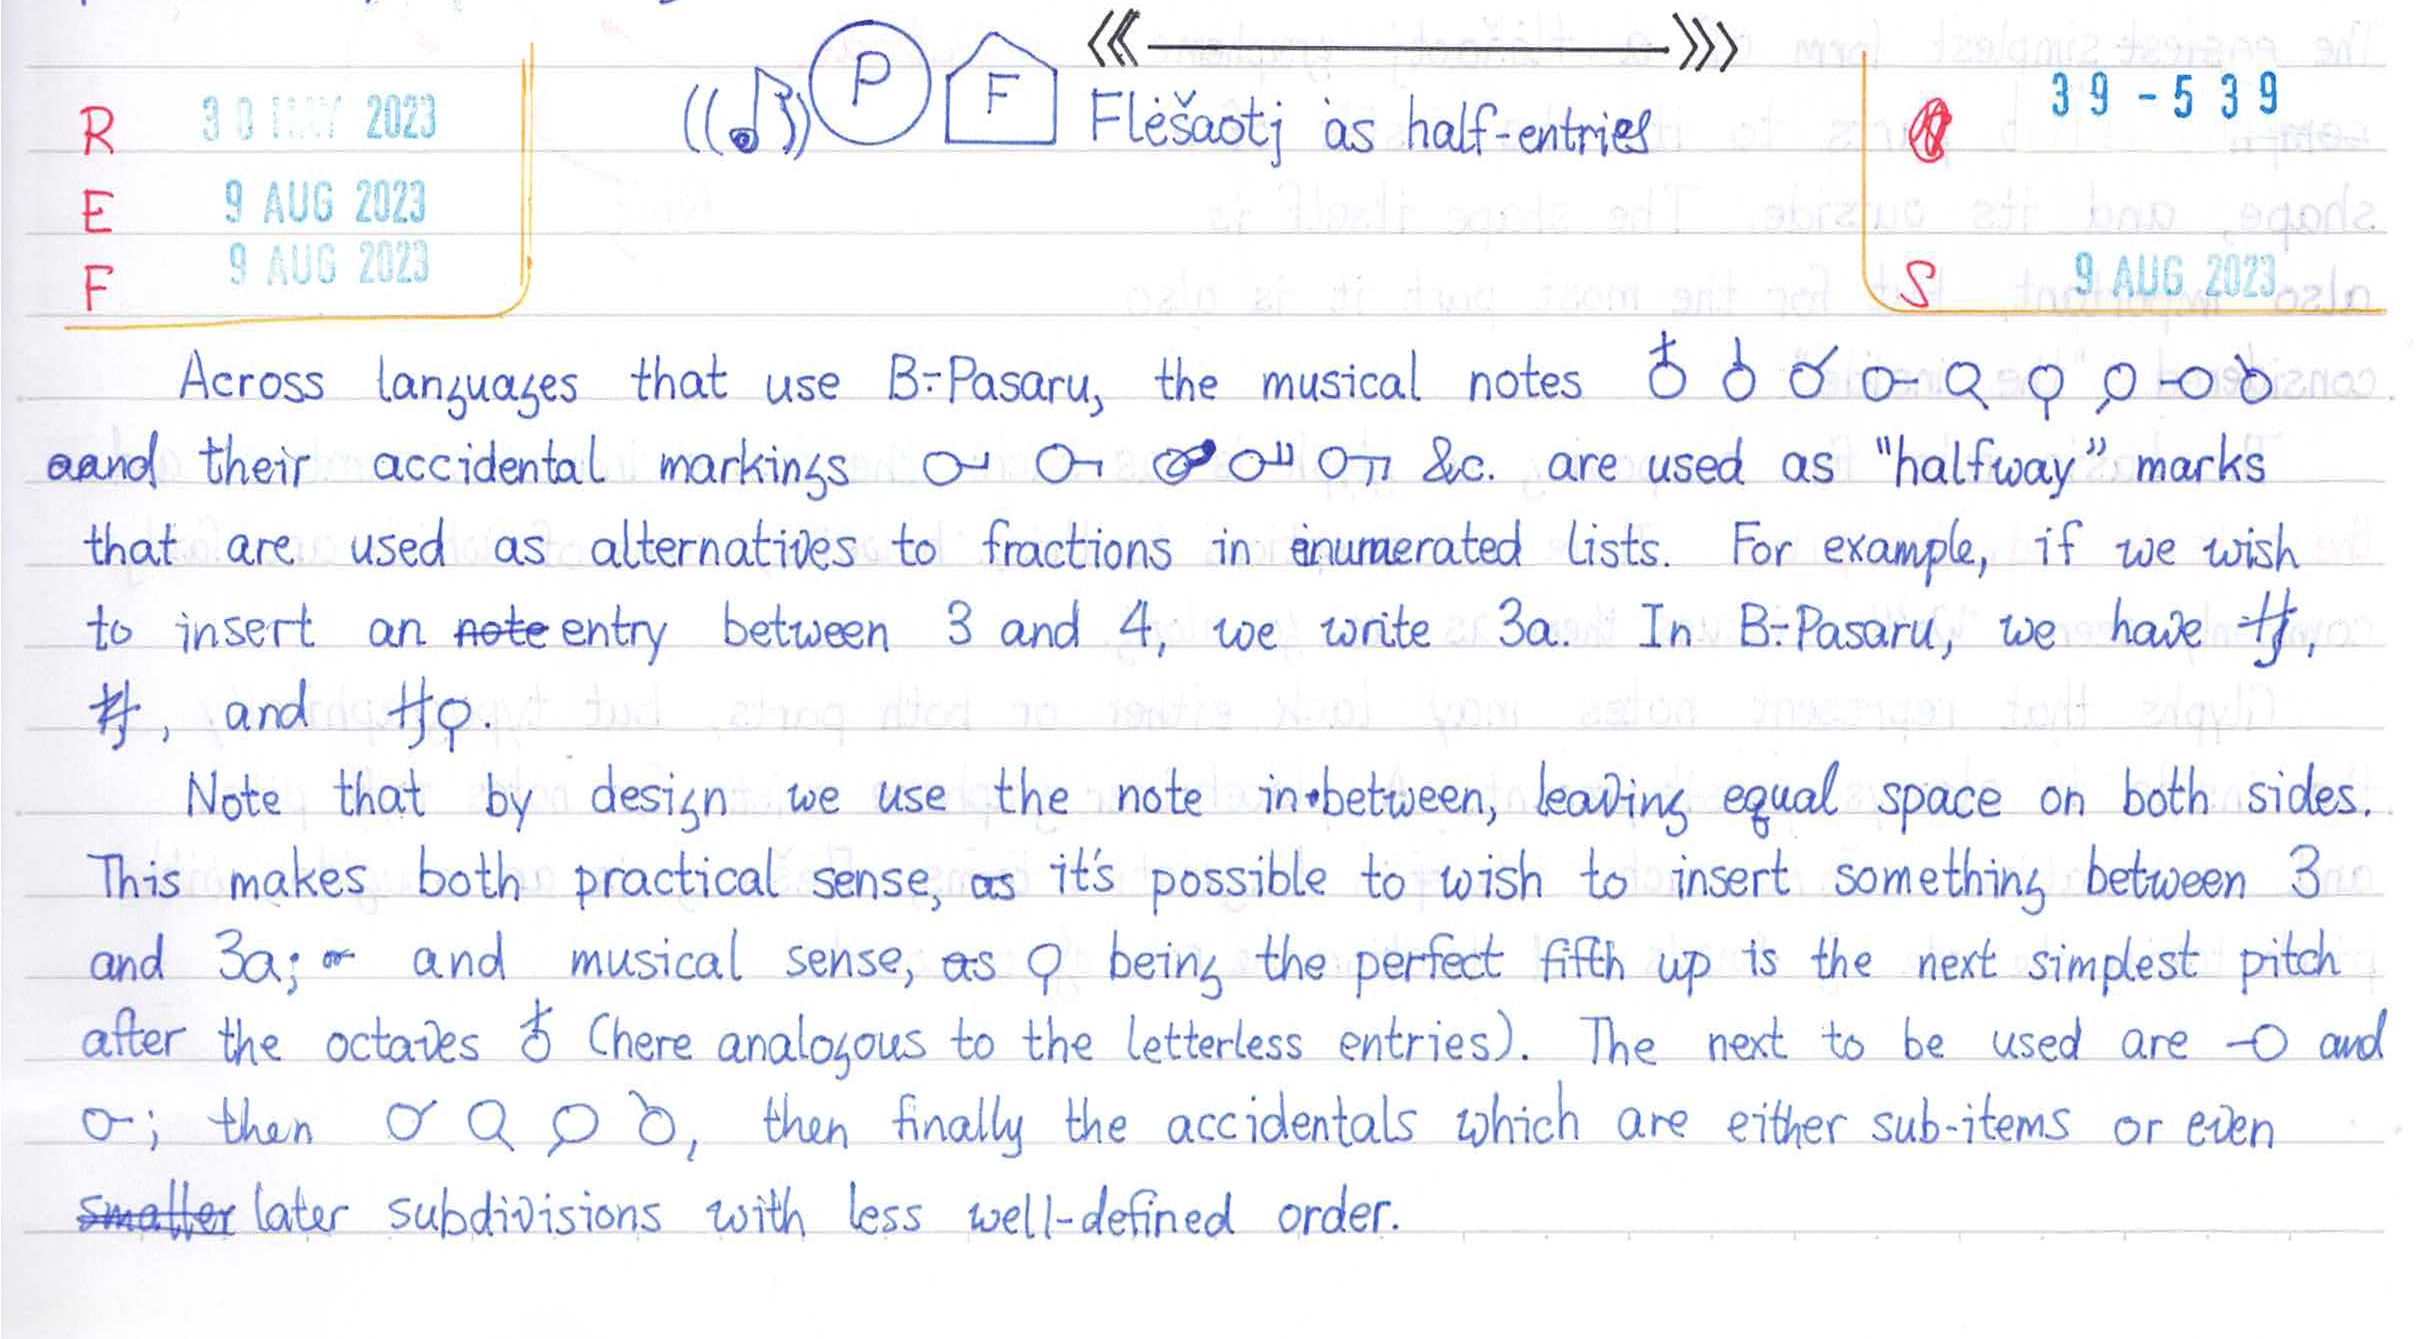 R 30 MAY 2023
E 9 AUG 2023
F 9 AUG 2023
P F Flėšaotj as half-entries
39-539
S 9 AUG 2023
Across languages that use B÷Pasaru, the musical notes
and their accidental markings &c. are used as "halfway" marks
that are used as alternatives to fractions in enumerated lists. For example, if we wish
to insert an note entry between 3 and 4, we write 3a. In B÷Pasaru, we have
, and
Note that by design we use the note in-between, leaving equal space on both sides.
This makes both practical sense, as it's possible to wish to insert something between 3
and 3a; and musical sense, as ϙ being the perfect fifth up is the next simplest pitch
after the octaves (here analogous to the letterless entries). The next to be used are and
; then , then finally the accidentals which are either sub-items or even
smaller later subdivisions with less well-defined order.